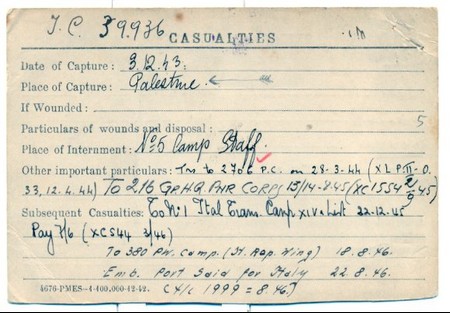 I.C. 39936
CASUALTIES
Date of Capture: 3.12.43.
Place of Capture: Palestine
If Wounded:
Particulars of wounds and disposal:
5
Place of Internment: No 5 Camp Staff
Other important particulars: Trs to 2706 P.C. on 28-3-44 (XLPII-0.
33, 12.4.44) To 216 GP.HQ PNR CORPS 13/14-8-45 (XC1554 2/9/45)
Subsequent Casualties: To No 1 Ital Tran. Camp XIV List 22-12-45
Pay 7/6 (XC544 3/46)
To 380 PW. Camp. (It. Rep. Wing) 18.8.46.
Emb. Port Said for Italy 22.8.46.
4676-PMES-4-400,000-12-42. (X/C 1999 = 8.46)